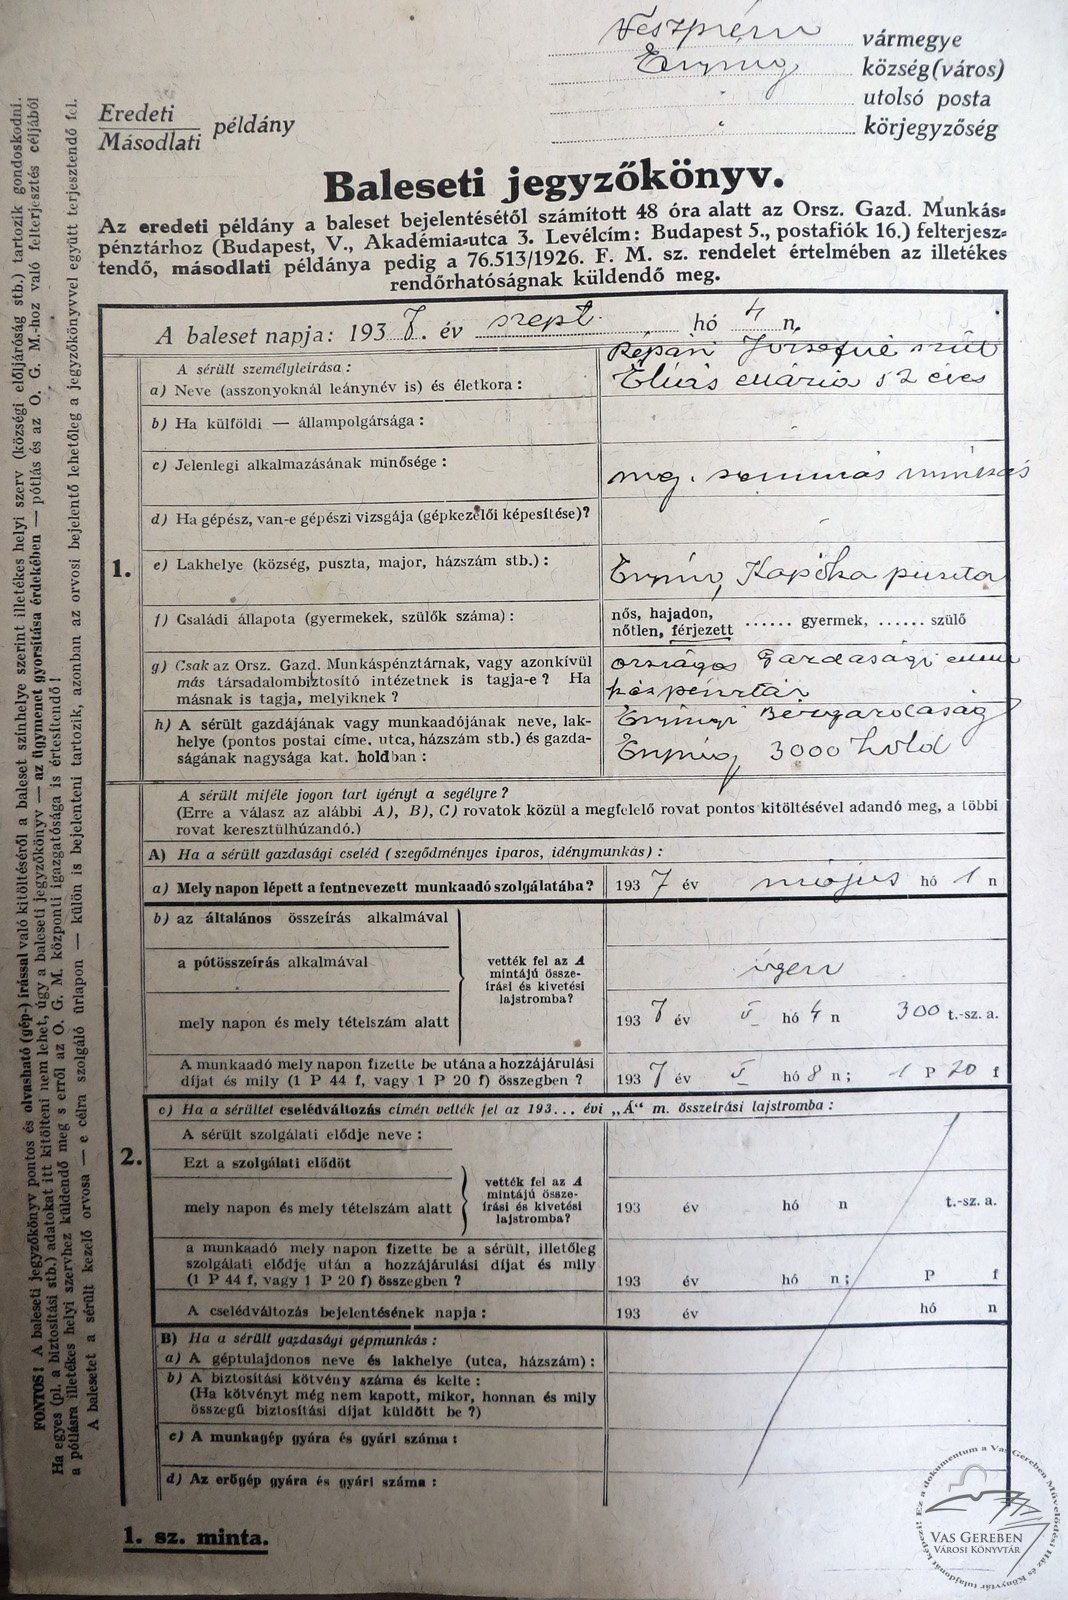 Veszprém vármegye
Enying község(város)
utolsó posta
körjegyzőség
Eredeti
Másodlati példány
Baleseti jegyzőkönyv.
Az eredeti példány a baleset bejelentésétől számított 48 óra alatt az Orsz. Gazd. Munkás=
pénztárhoz (Budapest, V., Akadémia=utca 3. Levélcím: Budapest 5., postafiók 16.) felterjesz=
tendő, másodlati példánya pedig a 76.513/1926. F. M. sz. rendelet értelmében az illetékes
rendőrhatóságnak küldendő meg.
A baleset napja: 1937. év szept. hó 4 n.
1.
A sérült személyleírása:
a) Neve (asszonyoknál leánynév is) és életkora: Répási Józsefné szül
Éliás Mária 52 éves
b) Ha külföldi — állampolgársága:
c) Jelenlegi alkalmazásának minősége: mg. sommás munkás
d) Ha gépész, van-e gépészi vizsgája (gépkezelői képesítése)?
e) Lakhelye (község, puszta, major, házszám stb.): Enying, Kapóka puszta
f) Családi állapota (gyermekek, szülők száma): nős, hajadon,
nőtlen, férjezett ...... gyermek, ...... szülő
g) Csak az Orsz. Gazd. Munkáspénztárnak, vagy azonkívül országos Gazdasági mun
más társadalombiztosító intézetnek is tagja-e? Ha káspénztár
másnak is tagja, melyiknek?
h) A sérült gazdájának vagy munkaadójának neve, lak- Enyingi Bérgazdaság
helye (pontos postai címe, utca, házszám stb.) és gazda- Enying, 3000 hold
ságának nagysága kat. holdban:
2.
A sérült miféle jogon tart igényt a segélyre?
(Erre a válasz az alábbi A), B), C) rovatok közül a megfelelő rovat pontos kitöltésével adandó meg, a többi
rovat keresztülhúzandó.)
A) Ha a sérült gazdasági cseléd (szegődményes iparos, idénymunkás):
a) Mely napon lépett a fentnevezett munkaadó szolgálatába? 1937 év május hó 1 n
b) az általános összeírás alkalmával
a pótösszeírás alkalmával
vették fel az A
mintájú össze-
írási és kivetési
lajstromba?
igen
mely napon és mely tételszám alatt 1937 év V hó 4 n 300 t.-sz. a.
A munkaadó mely napon fizette be utána a hozzájárulási
díjat és mily (1 P 44 f, vagy 1 P 20 f) összegben? 1937 év V hó 8 n; 1 P 20 f
c) Ha a sérültet cselédváltozás címén vették fel az 193... évi „A“ m. összeírási lajstromba:
A sérült szolgálati elődje neve:
Ezt a szolgálati elődöt
vették fel az A
mintájú össze-
írási és kivetési
lajstromba?
mely napon és mely tételszám alatt 193 év hó n t.-sz. a.
a munkaadó mely napon fizette be a sérült, illetőleg
szolgálati elődje után a hozzájárulási díjat és mily
(1 P 44 f, vagy 1 P 20 f) összegben? 193 év hó n; P f
A cselédváltozás bejelentésének napja: 193 év hó n
B) Ha a sérült gazdasági gépmunkás:
a) A géptulajdonos neve és lakhelye (utca, házszám):
b) A biztosítási kötvény száma és kelte:
(Ha kötvényt még nem kapott, mikor, honnan és mily
összegű biztosítási díjat küldött be?)
c) A munkagép gyára és gyári száma:
d) Az erőgép gyára és gyári száma:
1. sz. minta.
FONTOS! A baleseti jegyzőkönyv pontos és olvasható (gép-) írással való kitöltéséről a baleset színhelye szerint illetékes helyi szerv (községi elöljáróság stb.) tartozik gondoskodni.
Ha egyes (pl. a biztosítási stb.) adatokat itt kitölteni nem lehet, úgy a baleseti jegyzőkönyv — az ügymenet gyorsítása érdekében — pótlás és az O. G. M.-hoz való felterjesztés céljából
a pótlásra illetékes helyi szervhez küldendő meg s erről az O. G. M. központi igazgatósága is értesítendő!
A balesetet a sérült kezelő orvosa — e célra szolgáló űrlapon — külön is bejelenteni tartozik, azonban az orvosi bejelentő lehetőleg a jegyzőkönyvvel együtt terjesztendő fel.
Ez a dokumentum a Vas Gereben Művelődési Ház és Könyvtár tulajdonát képezi!
VAS GEREBEN
VÁROSI KÖNYVTÁR